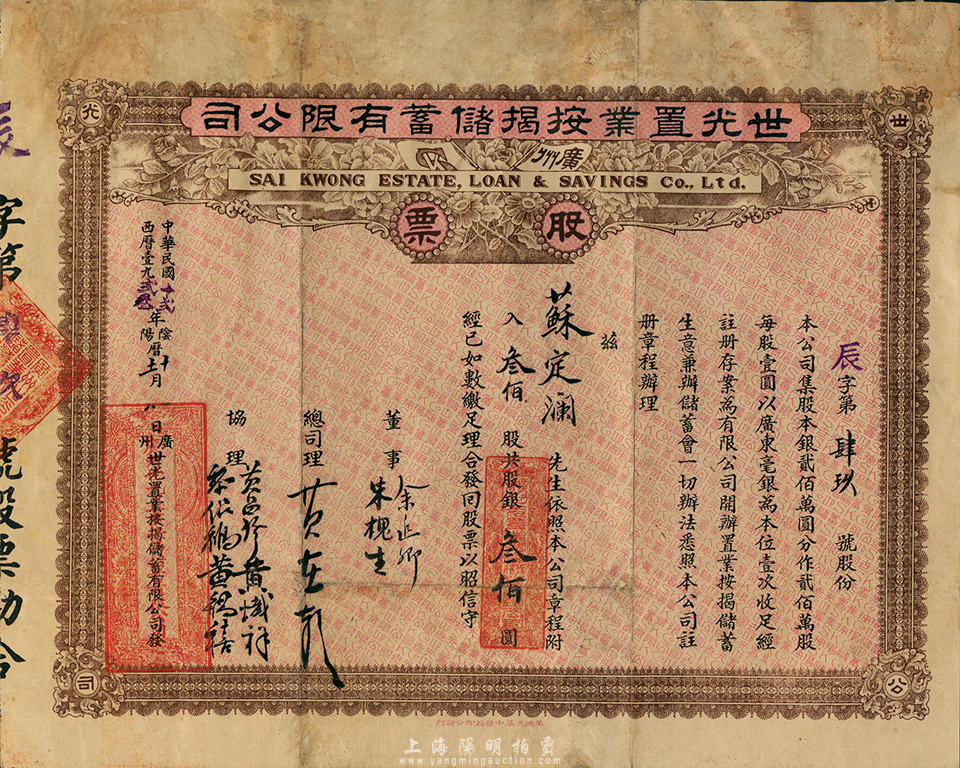 世光置業按揭儲蓄有限公司
廣州
SAI KWONG ESTATE, LOAN & SAVINGS Co., Ltd.
股票
世
光
公
司
辰字第肆玖號股份
本公司集股本銀貳佰萬圓分作貳佰萬股
每股壹圓以廣東毫銀為本位壹次收足經
註册存案為有限公司開辦置業按揭儲蓄
生意兼辦儲蓄會一切辦法悉照本公司註
册章程辦理
茲
蘇定瀾先生依照本公司章程附
入叁佰股共股銀叁佰圓
經已如數繳足理合發回股票以昭信守
董事
余止卿
朱槐生
總司理
協理
中華民國十弍年陰曆十月
西曆壹九弍叁年陽曆十一月
八日
廣州世光置業按揭儲蓄有限公司發
辰字第
號股票勷合
上海陽明拍賣
www.yangmingauction.com